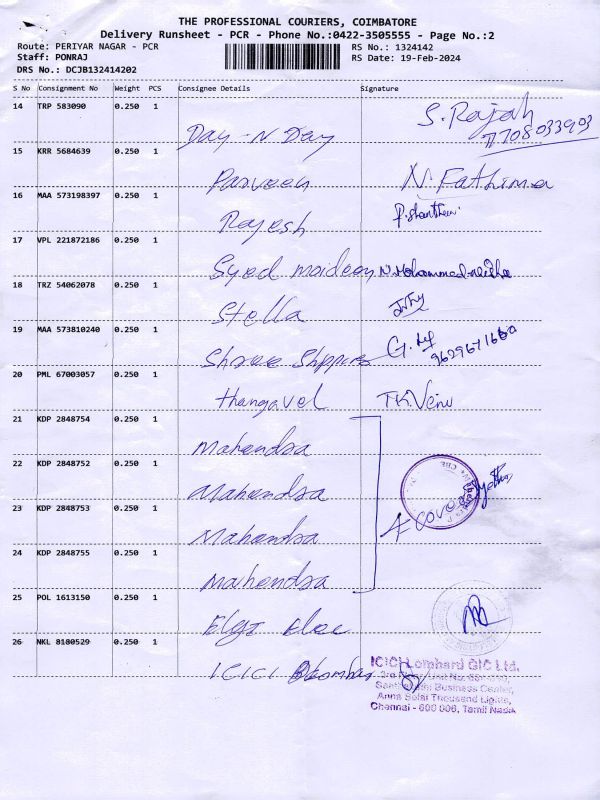 THE PROFESSIONAL COURIERS, COIMBATORE
Delivery Runsheet - PCR - Phone No.:0422-3505555 - Page No.:2
Route: PERIYAR NAGAR - PCR RS No.: 1324142
Staff: PONRAJ RS Date: 19-Feb-2024
DRS No.: DCJB132414202
S No Consignment No Weight PCS Consignee Details Signature
14 TRP 583090 0.250 1 Day-N Day S. Rajah
7708033903
15 KRR 5684639 0.250 1 Parveen N. Fathima
16 MAA 573198397 0.250 1 Rajesh
17 VPL 221872186 0.250 1 Syed maideen
18 TRZ 54062078 0.250 1 Stella
19 MAA 573810240 0.250 1 Shree Shippers
20 PML 67003057 0.250 1 Thangavel T.K. Venu
21 KDP 2848754 0.250 1 Mahendra
22 KDP 2848752 0.250 1 Mahendra
23 KDP 2848753 0.250 1 Mahendra 4 Cover
24 KDP 2848755 0.250 1 Mahendra
25 POL 1613150 0.250 1 Elgi Elec
26 NKL 8180529 0.250 1 ICICI
ICICI Lombard GIC Ltd.
Business Center,
Anna Salai Thousand Lights,
Chennai - 600 006, Tamil Nadu